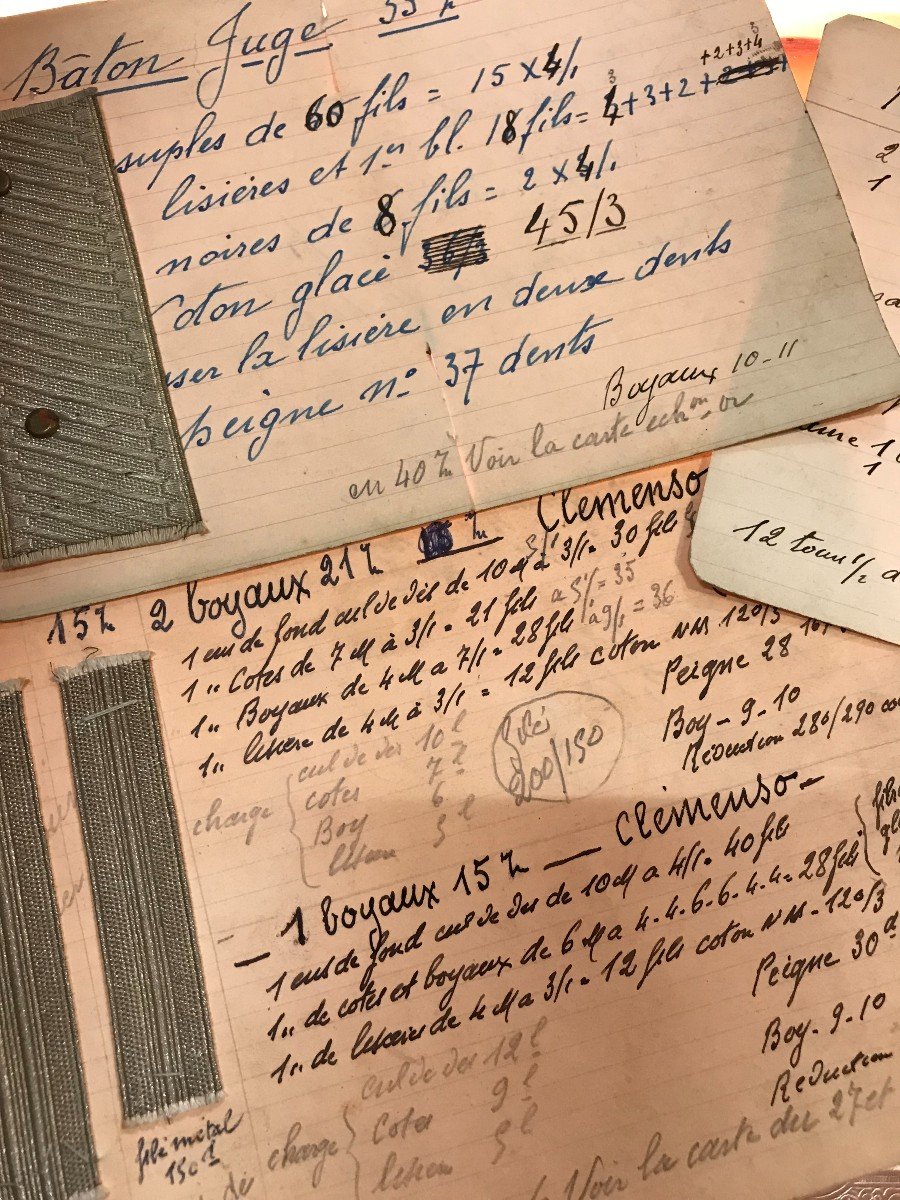 Bâton Juge
suples de 60 fils = 15 x 4/1
lisières et 1er bl. 18 fils = +3+2+
+2+3+4
noires de 8 fils = 2 x 4/1
oton glacé 45/3
ser la lisière en deux dents
peigne n° 37 dents
Boyaux 10-11
en 40 Voir la carte echon or
2
1
1
1
12 tours
15 2 boyaux 21 Clemenso
1 ens de fond cul de dés de 10 M à 3/1 = 30 fils
1 " Cotes de 7 M à 3/1 = 21 fils à 5/1 = 35
1 " Boyaux de 4 M a 7/1 = 28 fils à 9/1 = 36
1 " lisière de 4 M à 3/1 = 12 fils coton NM 120/3
Peigne 28
Boy - 9-10
Réduction 280/290
filé
200/150
charge
cul de dés 10
cotes 7
Boy 6
lisière
- 1 boyaux 15 — Clémenso -
1 ens de fond cul de dés de 10 M a 4/1 = 40 fils
1 " de cotes et boyaux de 6 M a 4.4.6.6.4.4 = 28 fils
1 " de lisières de 4 M a 3/1 = 12 fils coton NM - 120/3
Peigne 30 d
Boy - 9-10
Réduction
charge
cul de dés 12
Cotes 9
lisière
filé métal
150
Voir la carte du 27 et